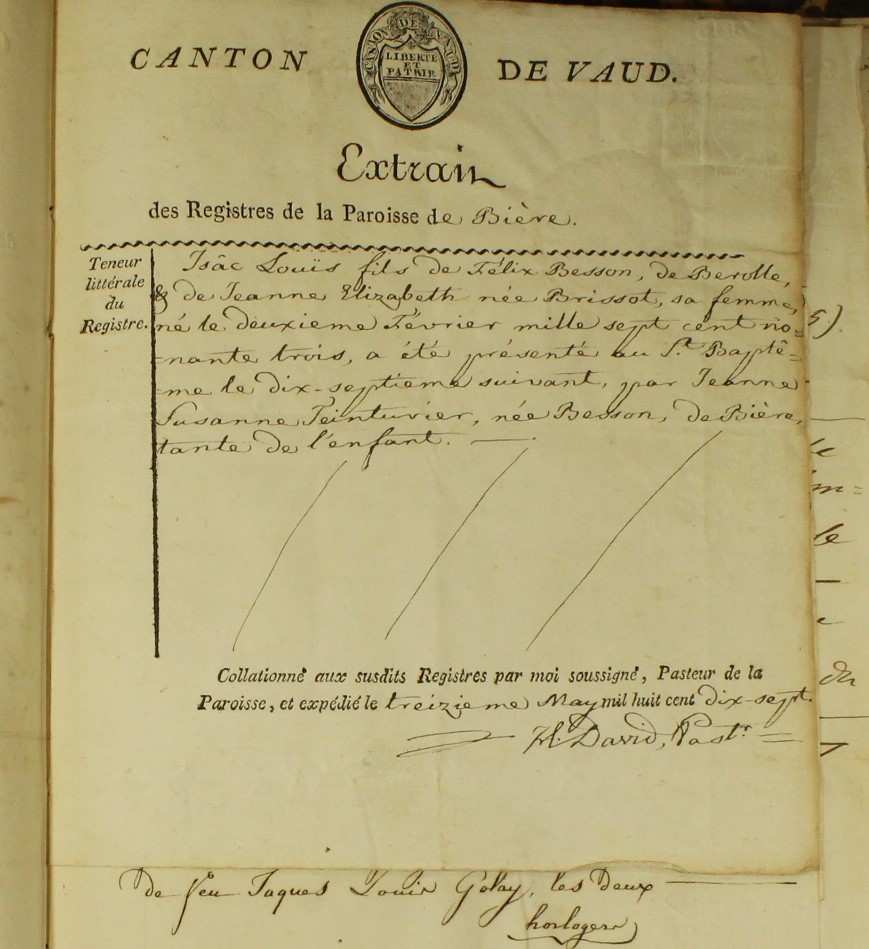 CANTON DE VAUD.
CANTON DE VAUD
LIBERTÉ
ET
PATRIE
Extrait
des Registres de la Paroisse de Bière.
Teneur
littérale
du
Registre.
Isâc Louïs fils de Félix Besson, de Berolle,
& de Jeanne Elizabeth née Brissot, sa femme,
né le deuxieme Février mille sept cent no=
=nante trois, a été présenté au St. Baptê=
=me le dix-septieme suivant, par Jeanne
Susanne Teinturier, née Besson, de Bière,
tante de l'enfant.
Collationné aux susdits Registres par moi soussigné, Pasteur de la
Paroisse, et expédié le treizieme May mil huit cent dix-sept.
David, Pastr.
5).
le
m=
le
du
De feu Jaques Louis Golay, les deux
horlogers